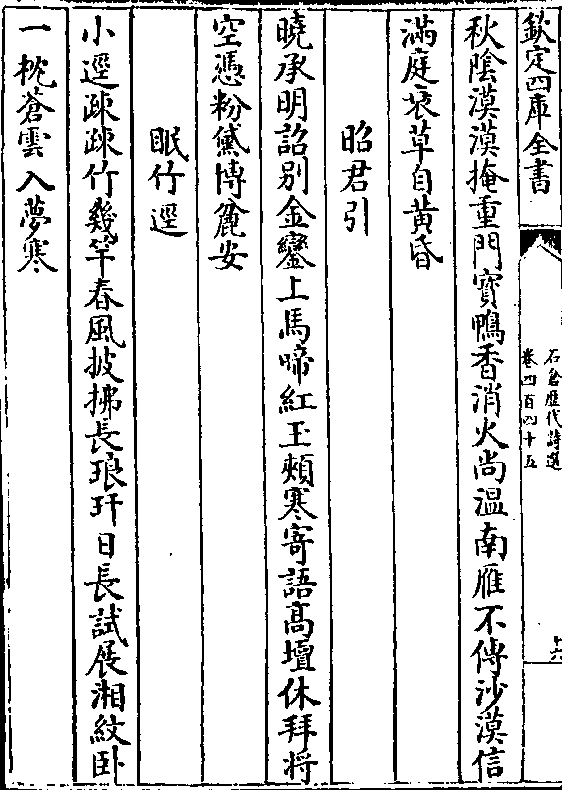 欽定四庫全書
石倉歷代詩選
卷四百四十五
十六
秋陰漠漠掩重門寳鴨香消火尚溫南雁不傳沙漠信
滿庭衰草自黃昏
昭君引
曉承明詔别金鑾上馬啼紅玉頰寒寄語髙壇休拜將
空憑粉黛博麄安
眠竹逕
小逕疎疎竹幾竿春風披拂長琅玕日長試展湘紋卧
一枕蒼雲入夢寒